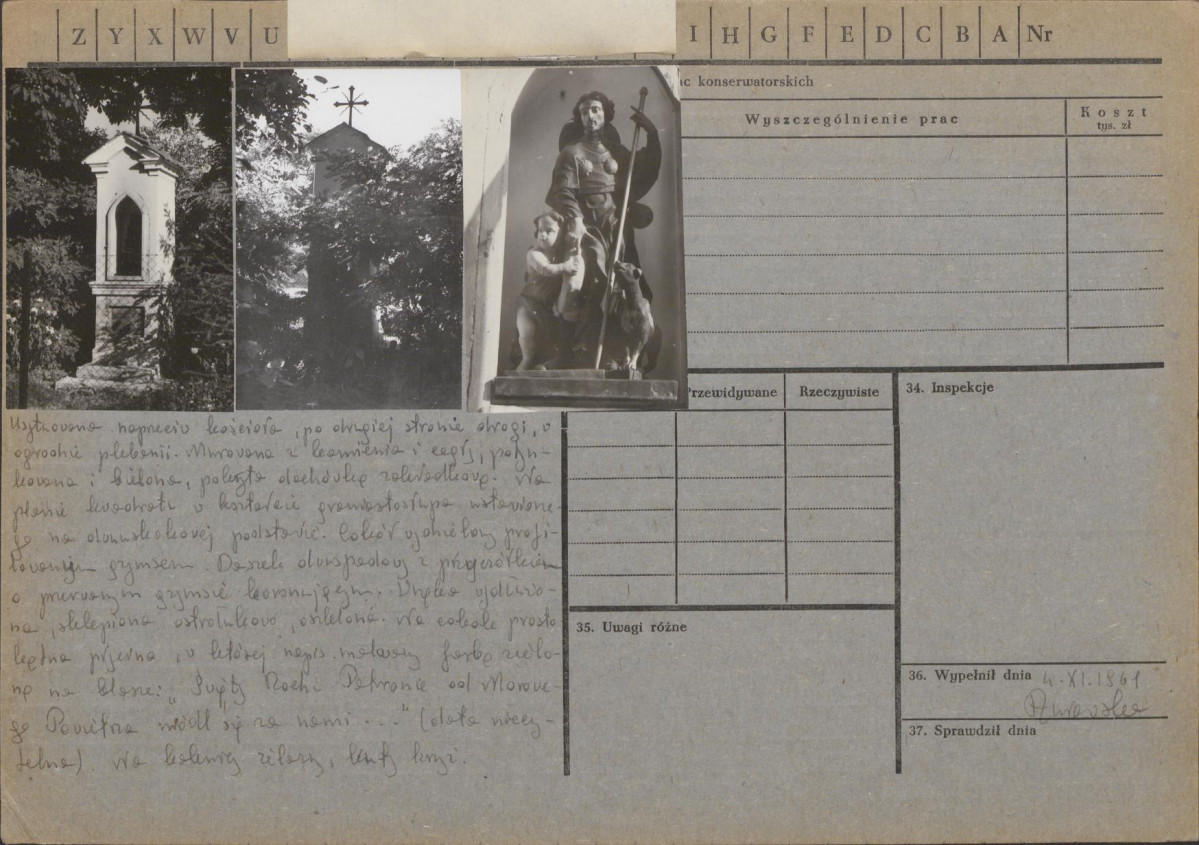 Z Y X W V U
I H G F E D C B A Nr
c konserwatorskich
Wyszczególnienie prac
Koszt
tys. zł
Przewidywane
Rzeczywiste
34. Inspekcje
Usytuowana naprzeciw kościoła, po drugiej stronie drogi, w
ogrodzie plebanii. Murowana z kamienia i cegły, potyn-
kowana i bielona, pokryta dachówką zakładkową. Na
planie kwadratu w kształcie graniastosłupa ustawione-
go na dwuuskokowej podstawie. Cokół wydzielony profi-
lowanym gzymsem. Daszek dwuspadowy z przyczółkiem
o przerwanym gzymsie koronującym. Wnęka wydłużo-
na, sklepiona ostrołukowo, oszklona. Na cokole prosto-
kątna płycina, w której napis malowany farbą zielo-
ną na blasze: "Święty Rochu Patronie od Morowe-
go Powietrza módl się za nami..." (data nieczy-
telna). Na kalenicy żelazny, kuty krzyż.
35. Uwagi różne
36. Wypełnił dnia 4.XI.1961
37. Sprawdził dnia